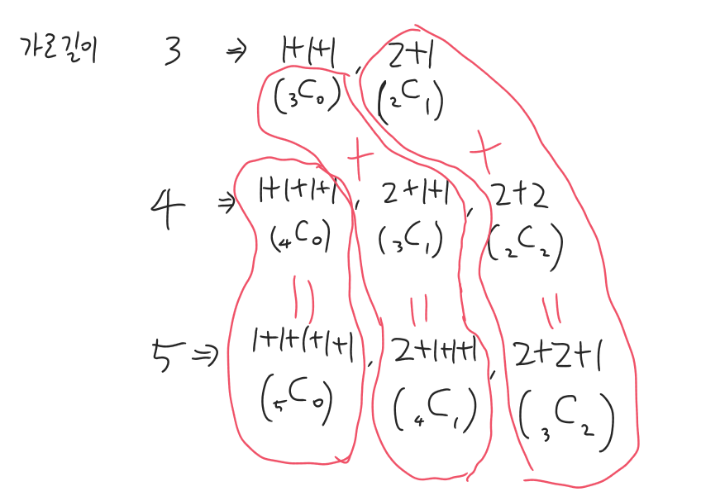 가로길이 3 ⇒ 1+1+1, 2+1
(₃C₀) (₂C₁)
+ +
4 ⇒ 1+1+1+1, 2+1+1, 2+2
(₄C₀) (₃C₁) (₂C₂)
|| || ||
5 ⇒ 1+1+1+1+1, 2+1+1+1, 2+2+1
(₅C₀) (₄C₁) (₃C₂)